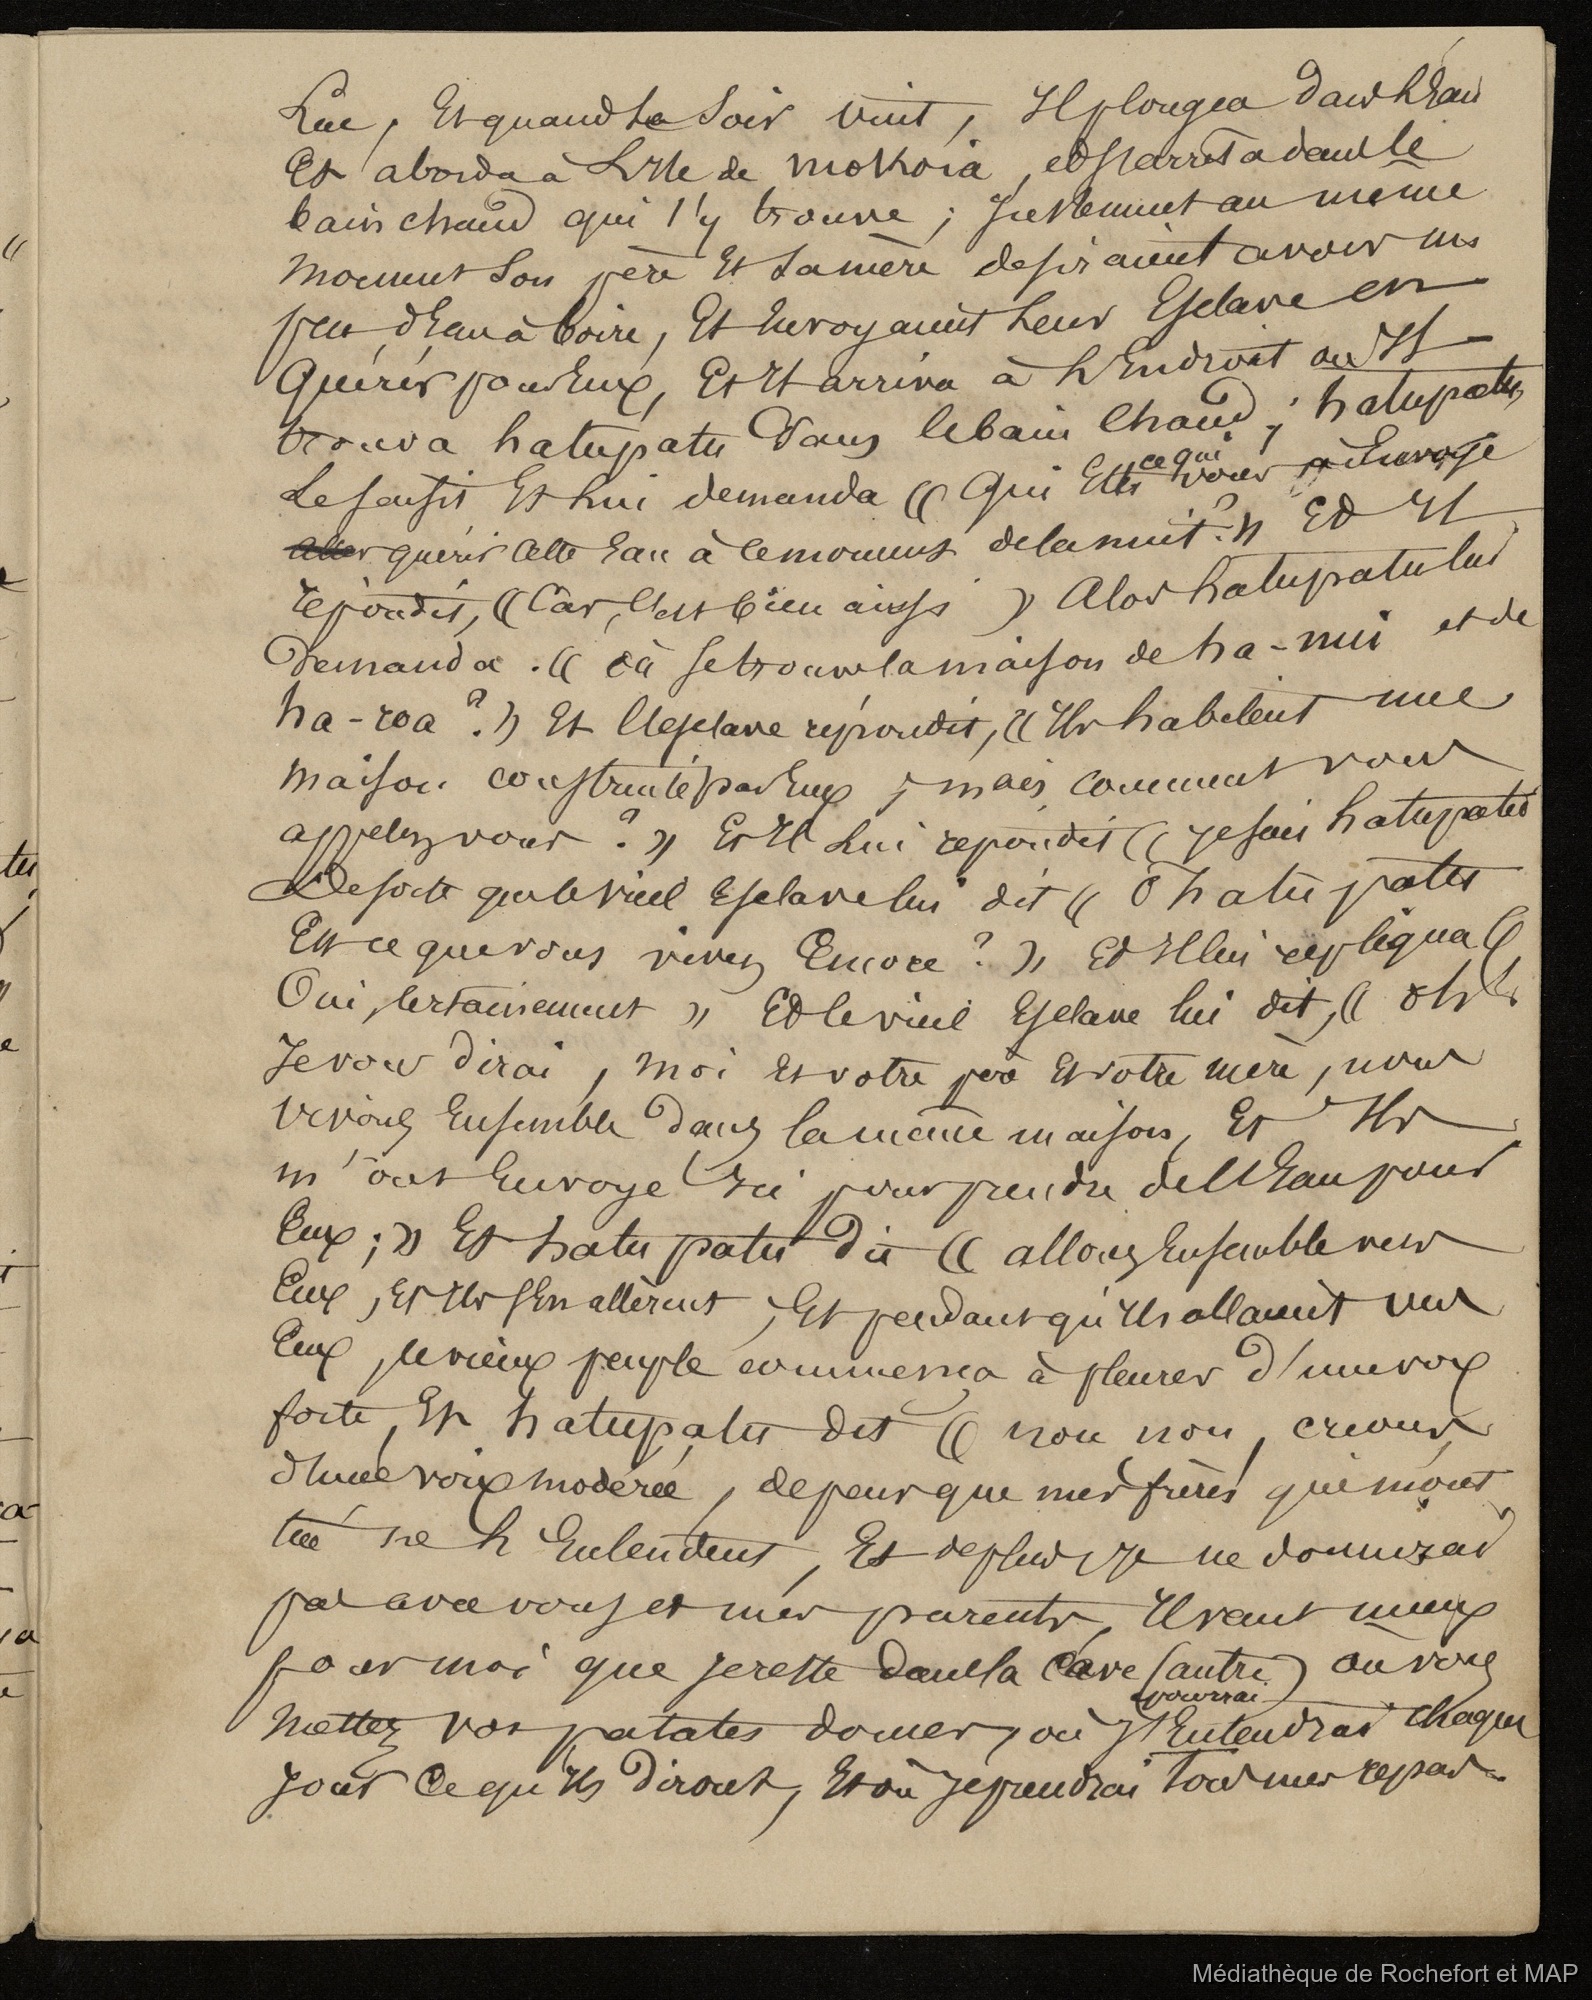 Lac, Et quand le Soir vint, Il plongea dans L'Eau
Et aborda à L'Ile de mokoia, et s'arrêta dans le
bain chaud qui s'y trouve ; Justement au même
moment Son père Et Sa mère desiraient avoir un
peu d'Eau à boire, Et Envoyaient Leur Esclave en
Quérir pour Eux, Et Il arriva à L'Endroit ou Il
trouva hatupatu dans le bain Chaud ; hatupatu
Le saisit Et Lui demanda (( Qui Etes vous ce qui a Envoyé
aller quérir Cette Eau à ce moment de la nuit ? )) Et Il
répondit, (( Car, C'est bien ainsi )) Alors hatupatu lui
demanda . (( où se trouve la maison de ha-nui et de
ha-roa ? )) Et l'Esclave répondit, (( Ils habitent une
maison construite par Eux ; mais Comment vous
appelez vous ? )) Et Il Lui repondit (( je suis hatupatu
De sorte que le vieil Esclave lui dit (( ô hatu patu
Est ce que vous vivez Encore ? )) Et Il lui repliqua ((
Oui, Certainement )) Et le vieil Esclave lui dit, (( oh
Je vous dirai, moi Et votre père Et votre mère, nous
vivons Ensemble dans la même maison, Et Ils
m'ont Envoyé Ici pour prendre de l'Eau pour
Eux ; )) Et hatu patu dit (( allons Ensemble vers
Eux, Et Ils s'En allèrent, Et pendant qu'Ils allaient vers
Eux, le vieux peuple commença à pleurer d'une voix
forte, Et hatupatu dit (( non non, crions
d'une voix modérée, de peur que mes frères qui m'ont
tué ne L'Entendent, Et de plus, Je ne dormirai
pas avec vous et mes parents, Il vaut mieux
pour moi que je reste dans la Cave (antre) où vous
mettez vos patates douces, où J'Entendrai pourrai chaque
jour Ce qu'Ils diront, Et où je prendrai tous mes repas
Médiathèque de Rochefort et MAP